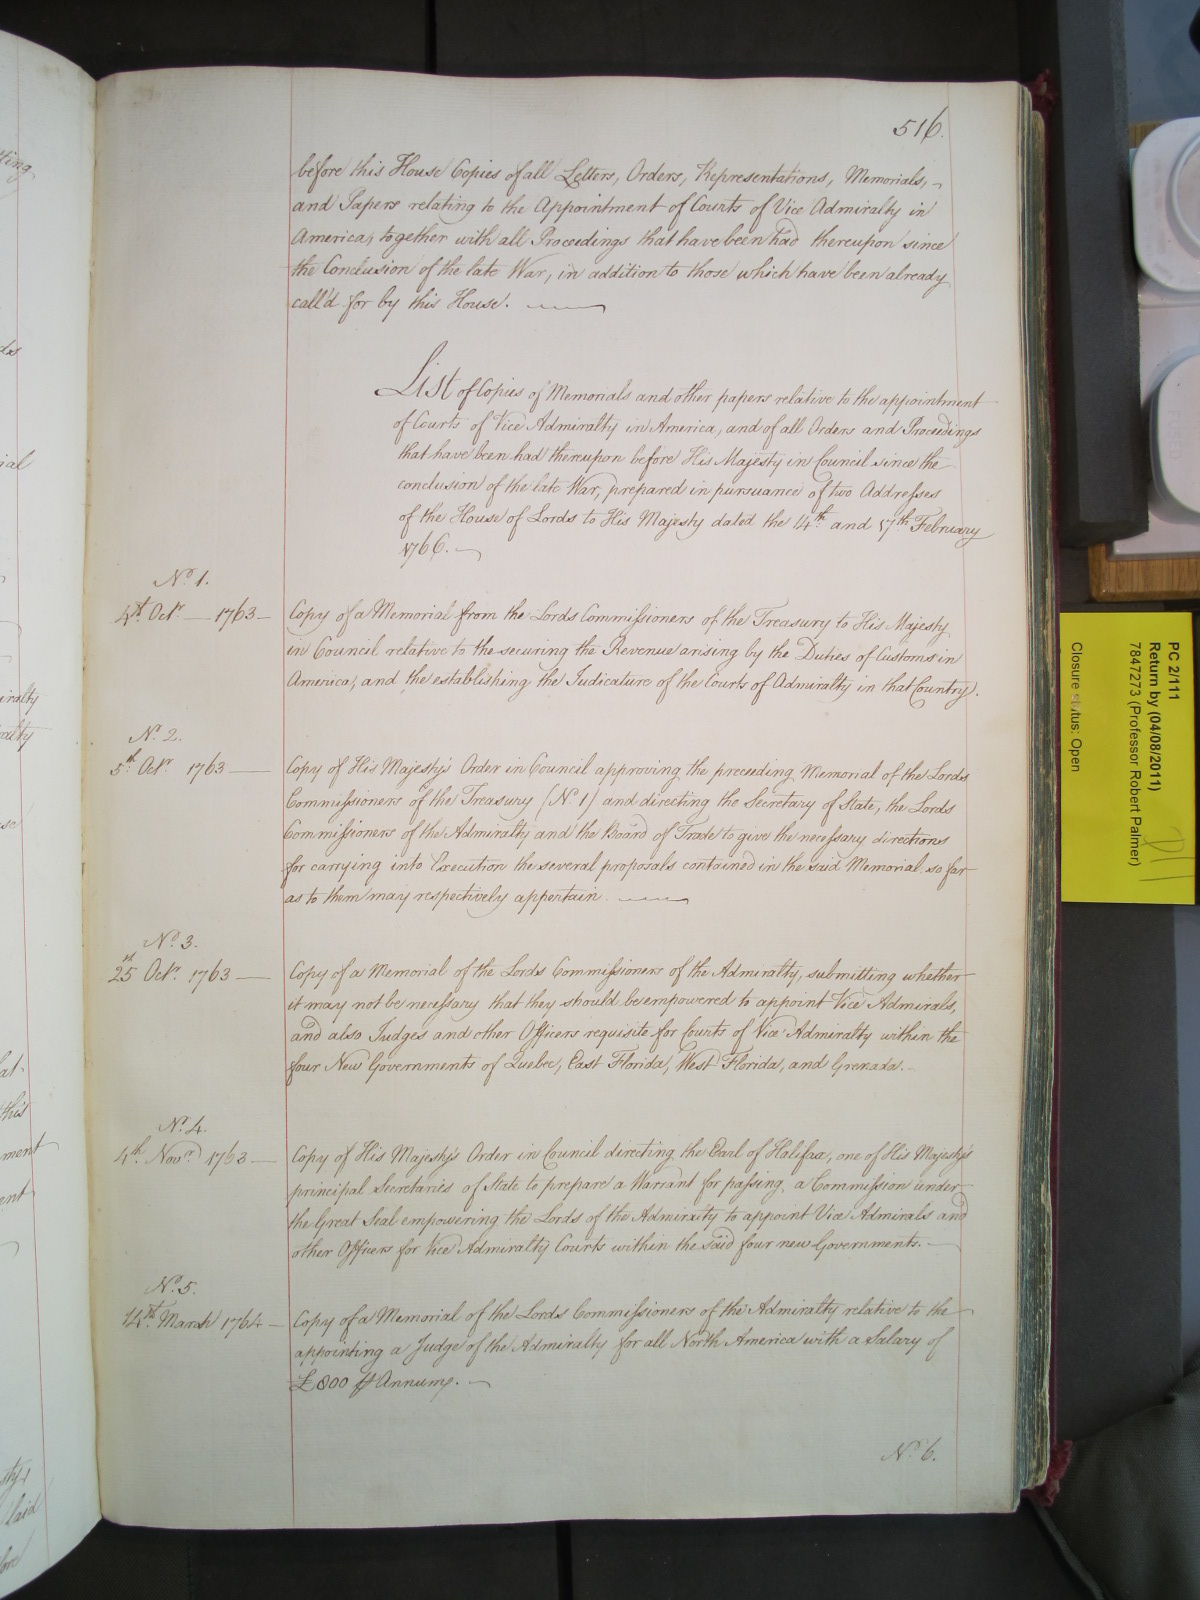 516.
before this House Copies of all Letters, Orders, Representations, Memorials,
and Papers relating to the Appointment of Courts of Vice Admiralty in
America, together with all Proceedings that have been had thereupon since
the Conclusion of the late War, in addition to those which have been already
call'd for by this House.
List of Copies of Memorials and other papers relative to the appointment
of Courts of Vice Admiralty in America, and of all Orders and Proceedings
that have been had thereupon before His Majesty in Council since the
conclusion of the late War, prepared in pursuance of two Addresses
of the House of Lords to His Majesty dated the 14th and 17th February
1766.
No. 1.
4th Octr. 1763
Copy of a Memorial from the Lords Commissioners of the Treasury to His Majesty
in Council relative to the securing the Revenue arising by the Duties of Customs in
America, and the establishing the Judicature of the Courts of Admiralty in that Country.
No. 2.
5th Octr. 1763
Copy of His Majesty's Order in Council approving the preceeding Memorial of the Lords
Commissioners of the Treasury (No. 1) and directing the Secretary of State, the Lords
Commissioners of the Admiralty and the Board of Trade to give the necessary directions
for carrying into Execution the several proposals contained in the said Memorial so far
as to them may respectively appertain.
No. 3.
25 Octr. 1763
Copy of a Memorial of the Lords Commissioners of the Admiralty, submitting whether
it may not be necessary that they should be empowered to appoint Vice Admirals,
and also Judges and other Officers requisite for Courts of Vice Admiralty within the
four New Governments of Quebec, East Florida, West Florida, and Grenada.
No. 4.
4th Novr. 1763
Copy of His Majesty's Order in Council directing the Earl of Halifax, one of His Majesty's
principal Secretaries of State to prepare a Warrant for passing a Commission under
the Great Seal empowering the Lords of the Admiralty to appoint Vice Admirals and
other Officers for Vice Admiralty Courts within the said four new Governments.
No. 5.
14th March 1764
Copy of a Memorial of the Lords Commissioners of the Admiralty relative to the
appointing a Judge of the Admiralty for all North America with a Salary of
£800 ⅌ Annum.
No. 6.
PC 2/111
Return by (04/08/2011)
7847273 (Professor Robert Palmer)
Closure status: Open